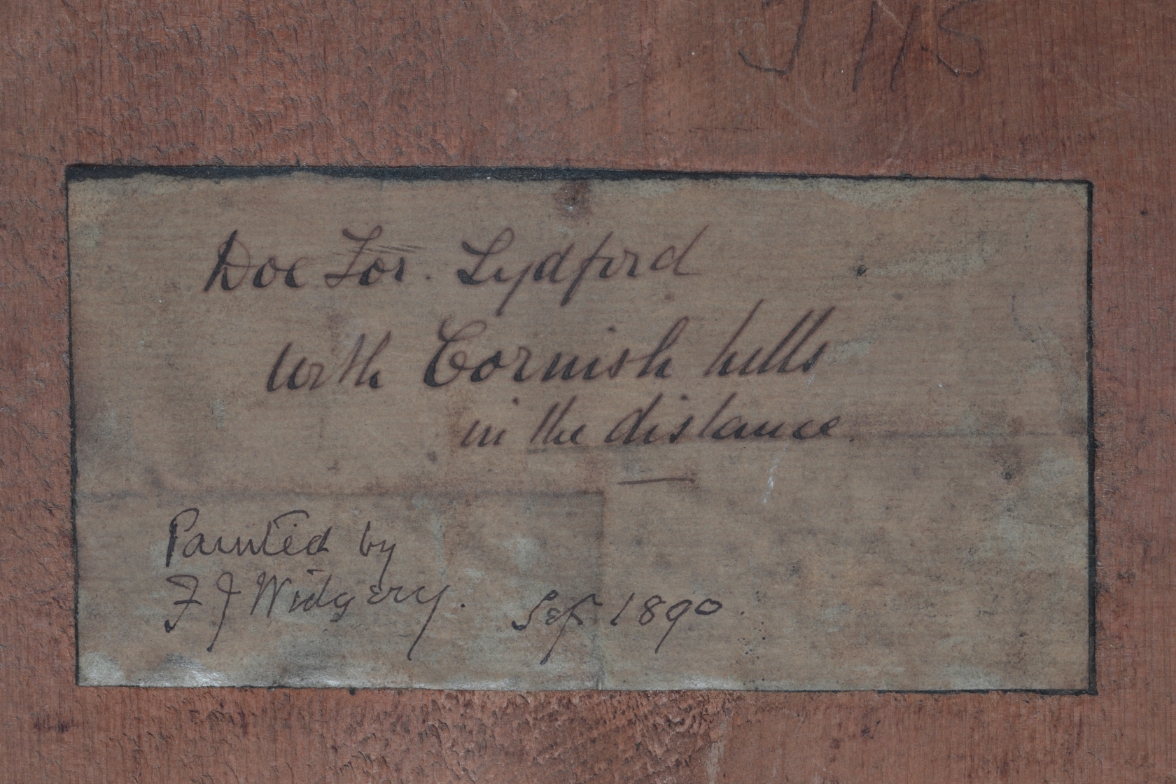 J H S
Doe Tor. Lydford
with Cornish hills
in the distance.
Painted by
F J Widgery.
Sep 1890.